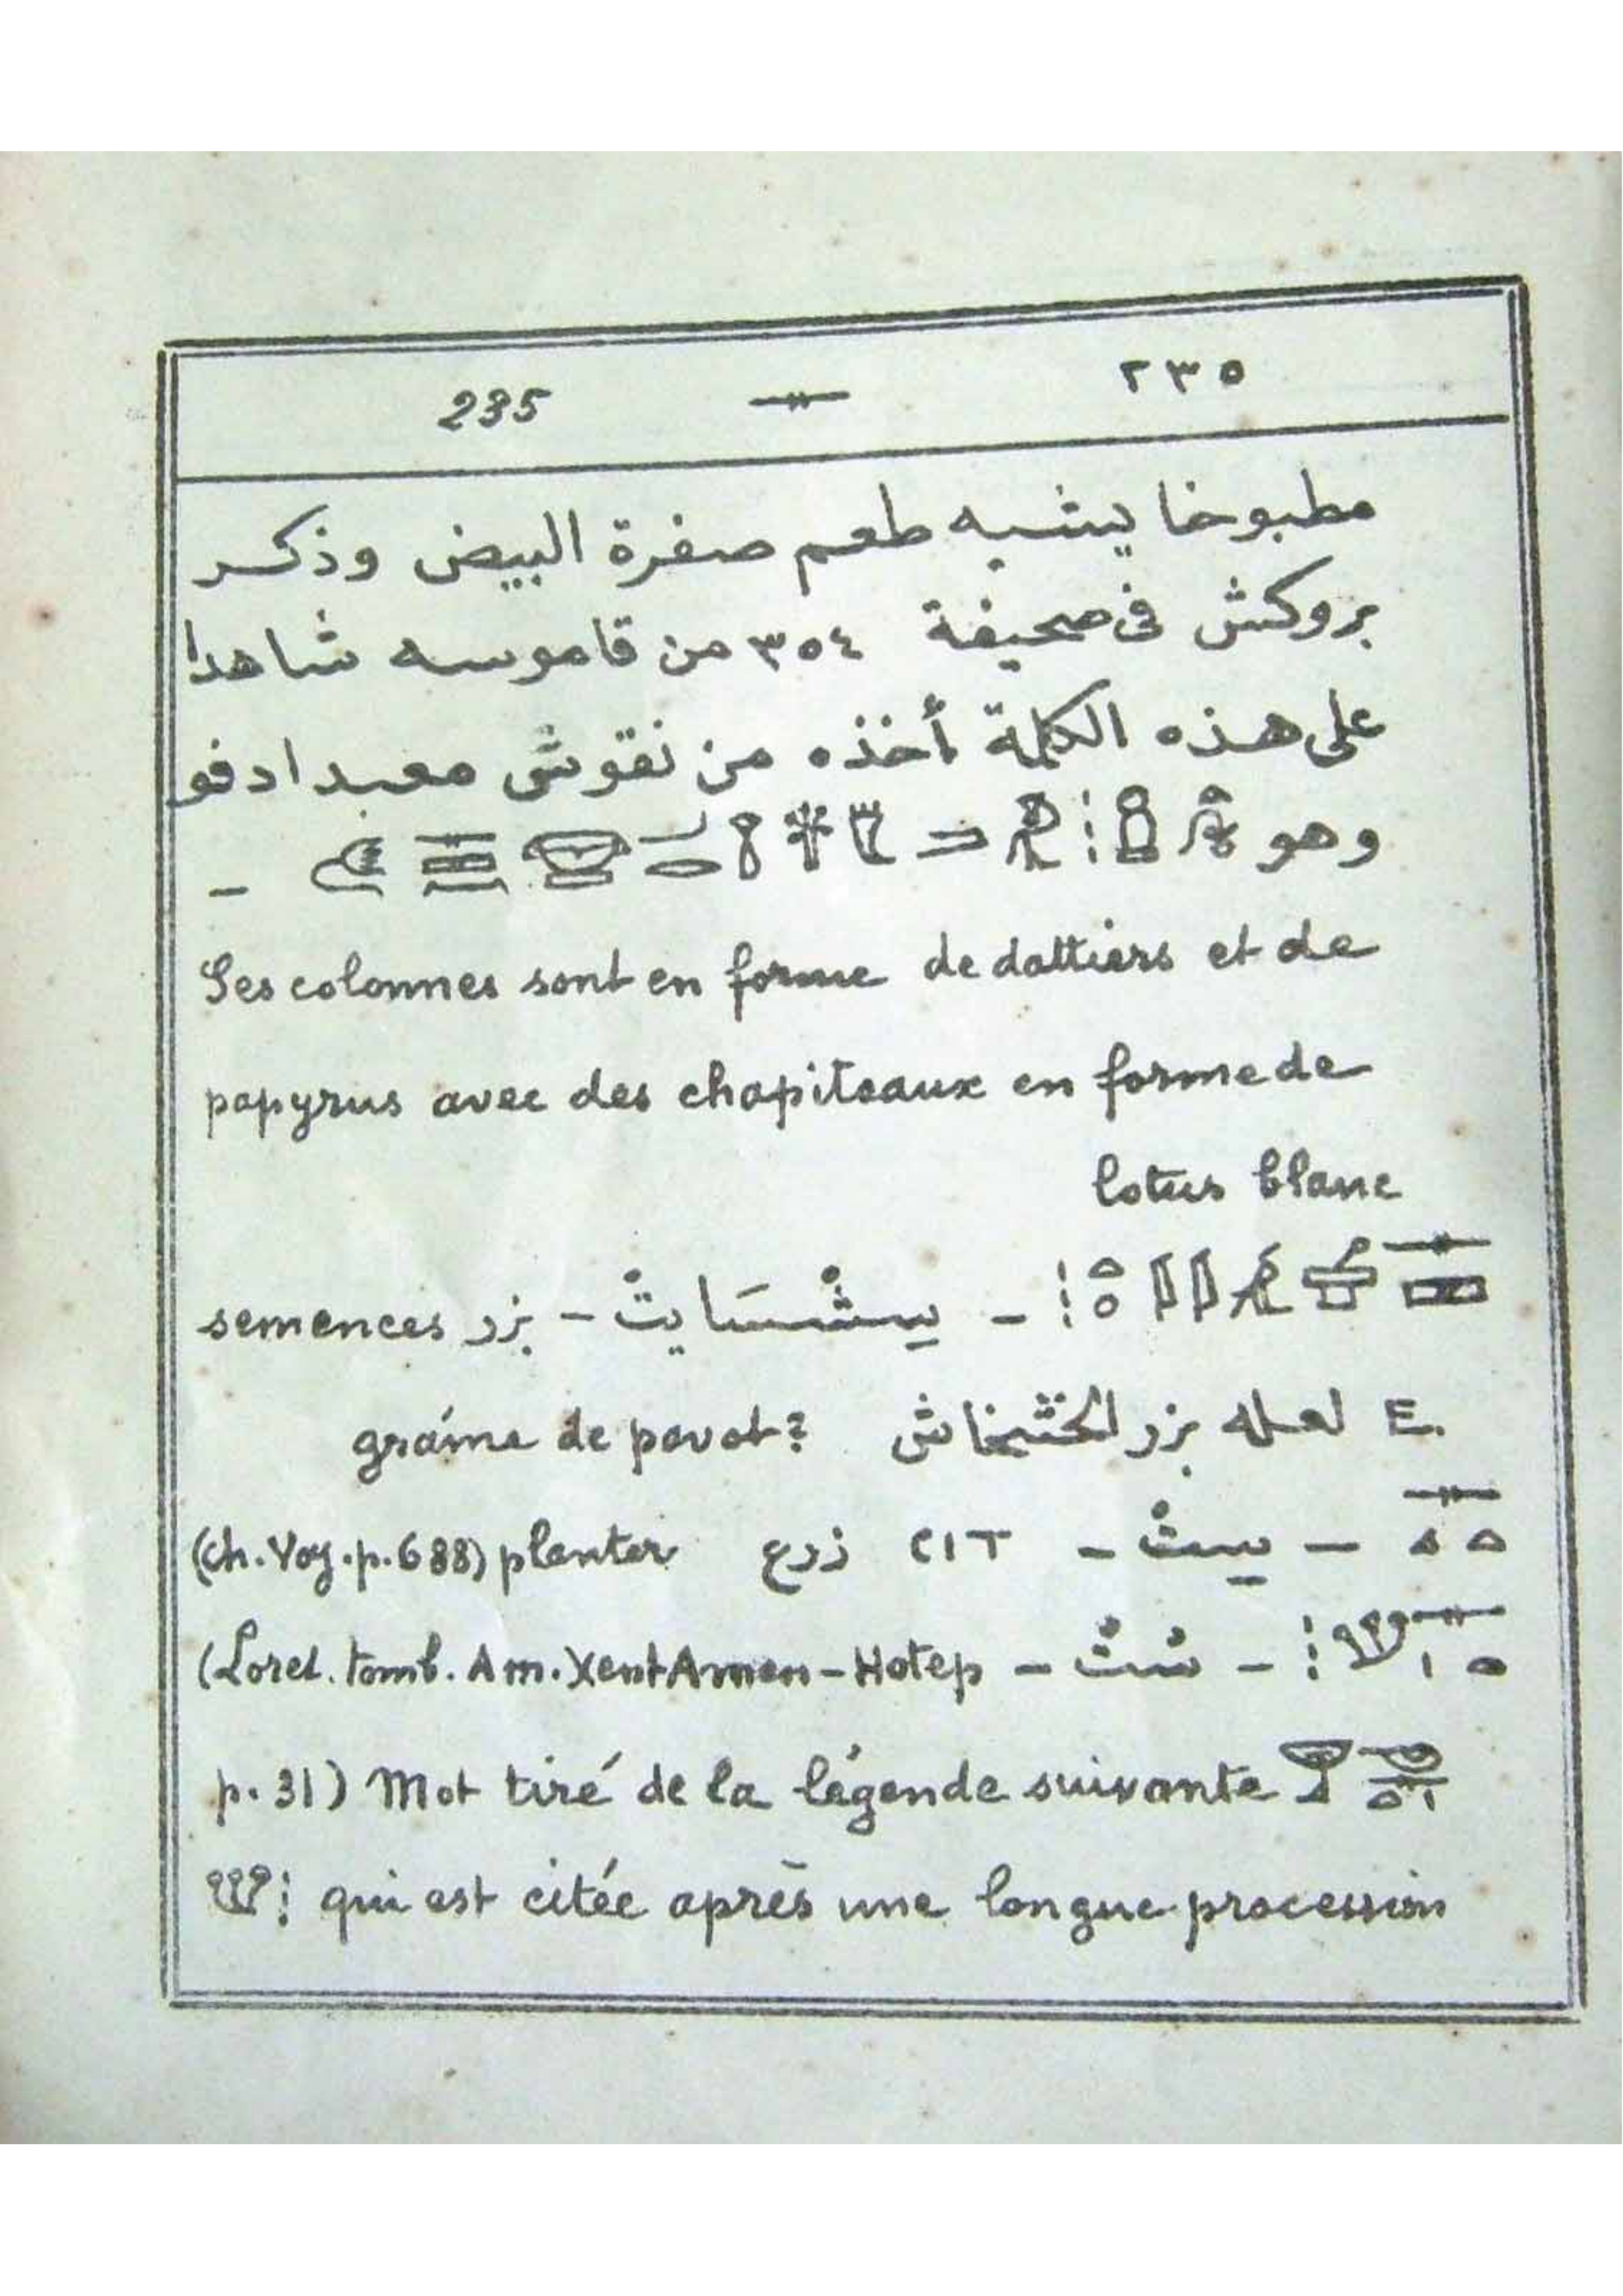 235 — ٢٣٥
مطبوخا يشبه طعم صفرة البيض وذكر
بروكش فى صحيفة ٣٥٤ من قاموسه شاهدا
على هذه الكلمة أخذه من نقوش معبد ادفو
وهو –
Ses colonnes sont en forme de dattiers et de
papyrus avec des chapiteaux en forme de
lotus blanc
– سِشْسَايتْ – بزر semences
E. لعله بزر الخشخاش graine de pavot?
– سِتْ – ⲥⲓⲧ زرع planter (ch. Voy. p. 688)
– سْتْ – (Loret. tomb. Am. Xent Amen-Hotep
p. 31) Mot tiré de la légende suivante
qui est citée après une longue procession